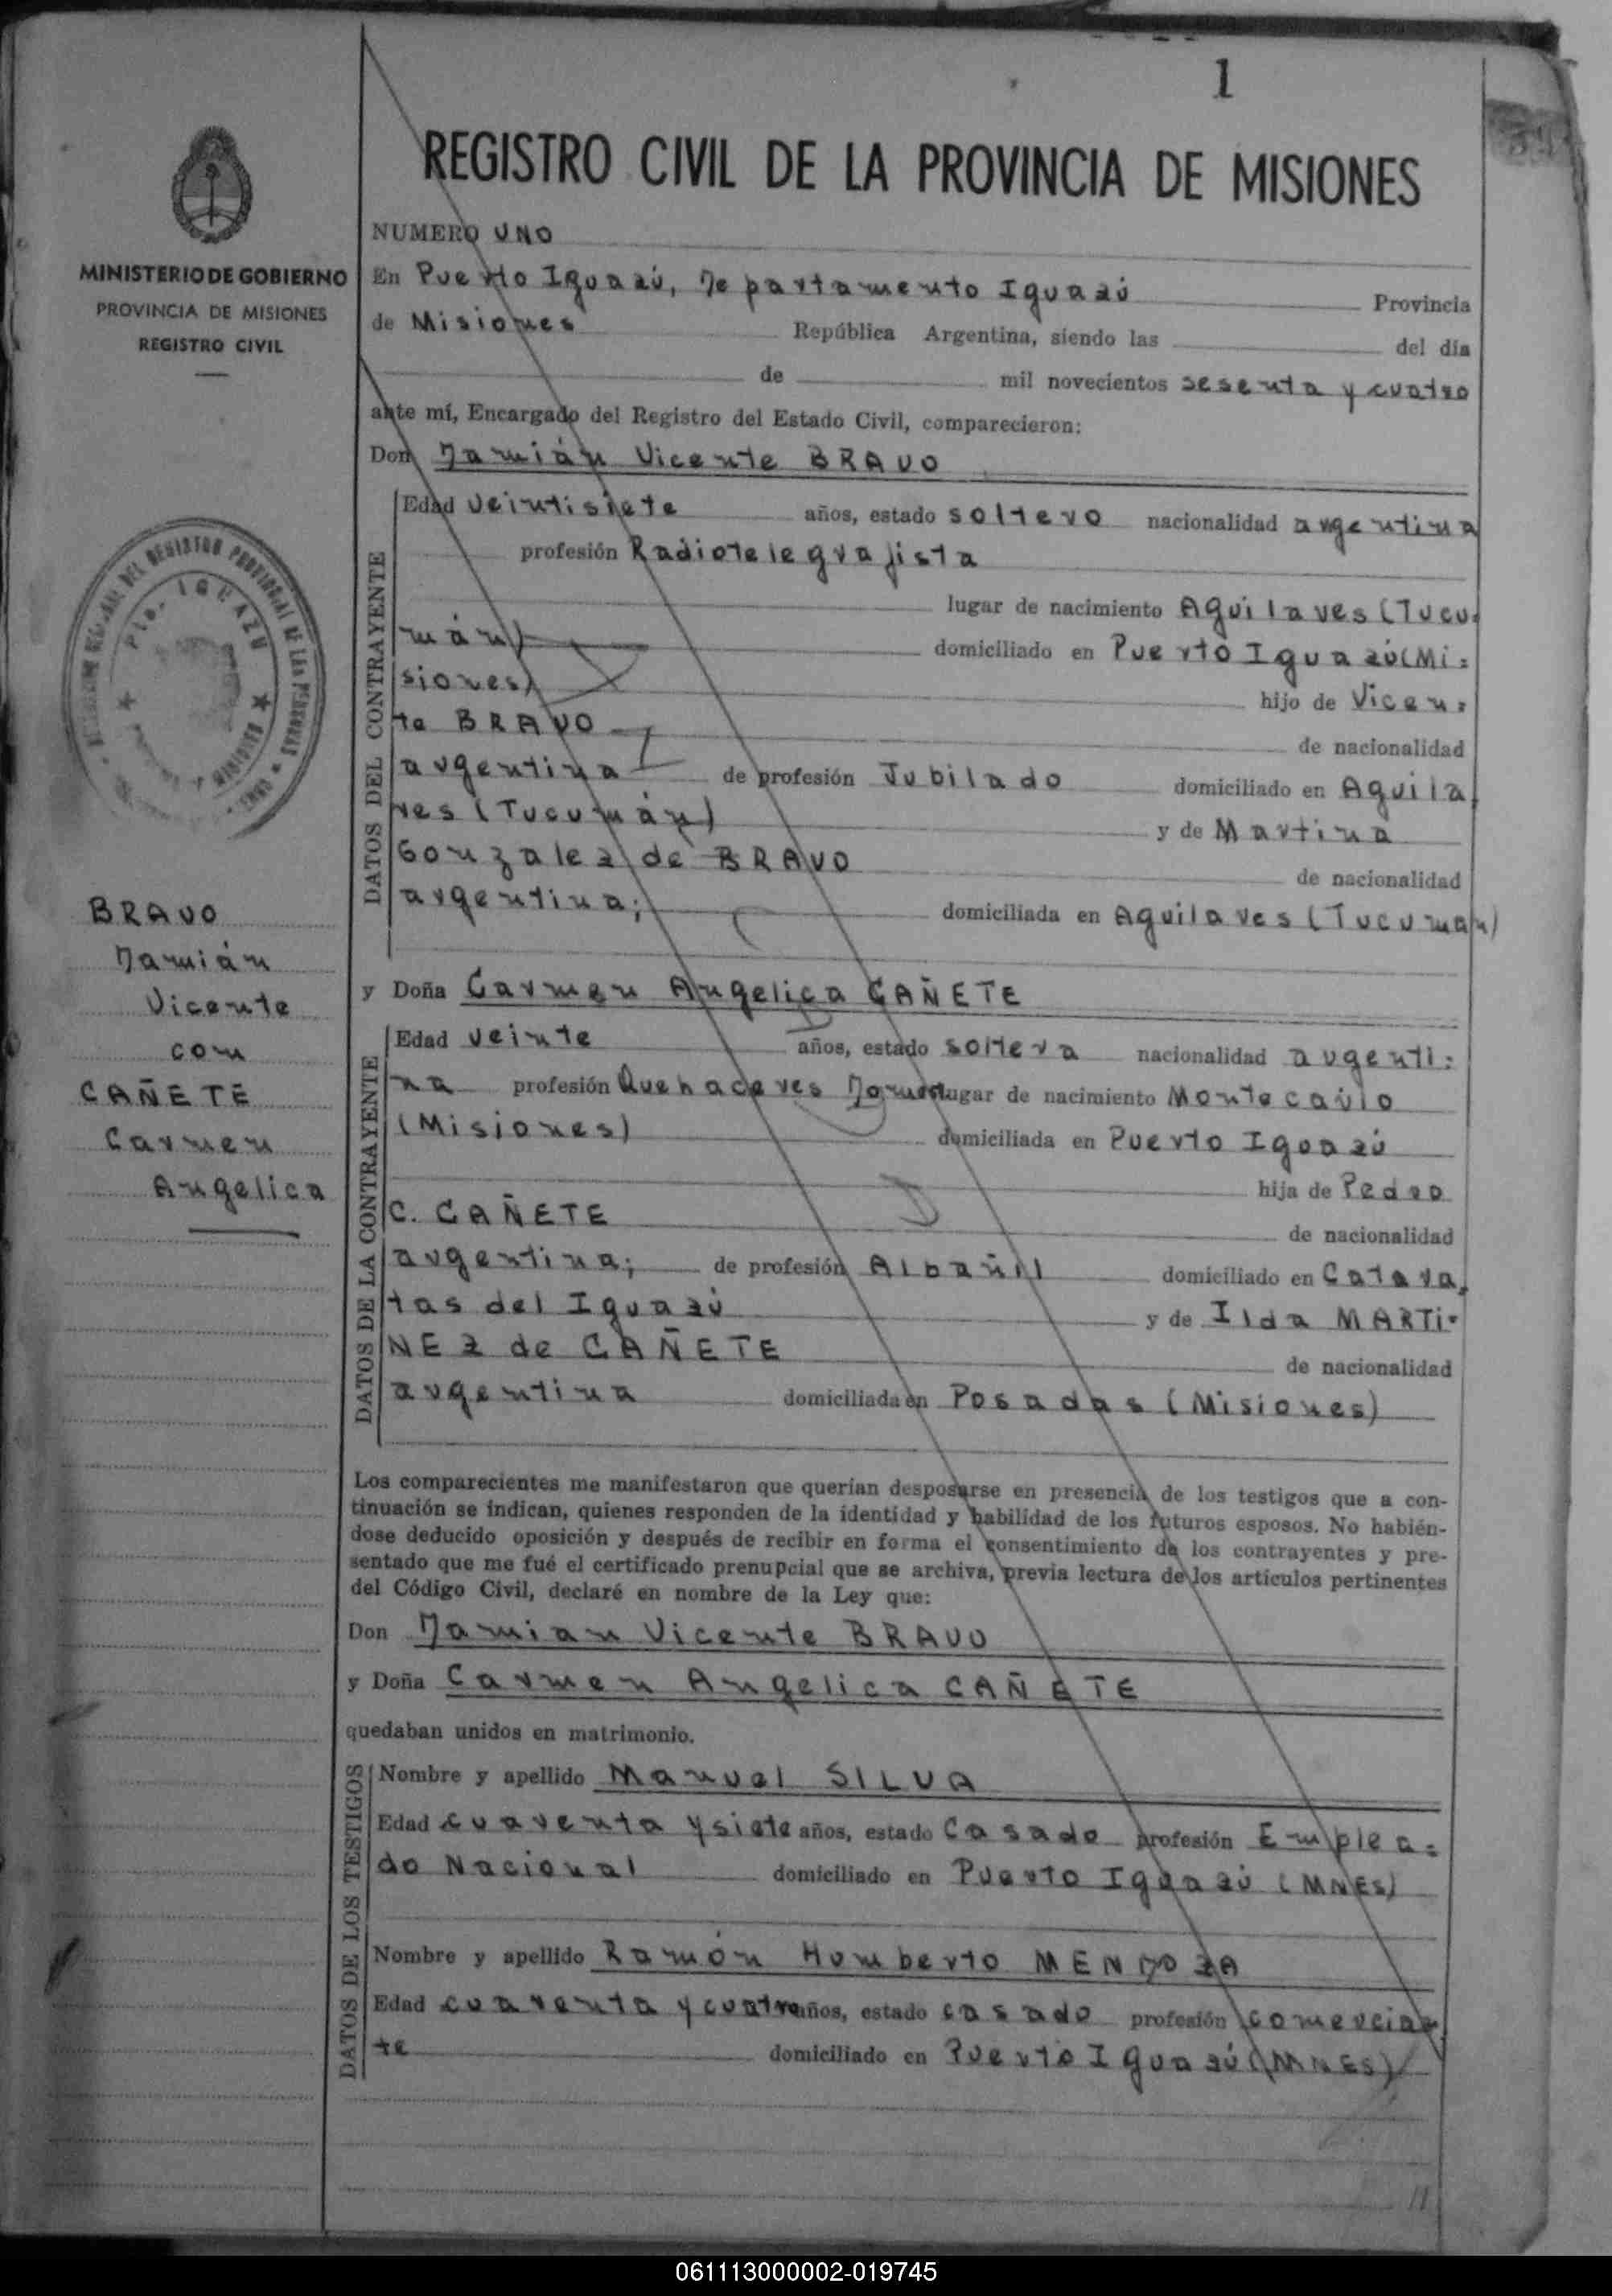 1
REGISTRO CIVIL DE LA PROVINCIA DE MISIONES
MINISTERIO DE GOBIERNO
PROVINCIA DE MISIONES
REGISTRO CIVIL
NUMERO UNO
En Puerto Iguazú, Departamento Iguazú Provincia
de Misiones República Argentina, siendo las del día
de mil novecientos sesenta y cuatro
ante mí, Encargado del Registro del Estado Civil, comparecieron:
Don Damián Vicente BRAVO
DATOS DEL CONTRAYENTE
Edad veintisiete años, estado soltero nacionalidad argentina
profesión Radiotelegrafista
lugar de nacimiento Aguilares (Tucu-
mán) domiciliado en Puerto Iguazú (Mi=
siones) hijo de Vicen=
te BRAVO de nacionalidad
argentina de profesión Jubilado domiciliado en Aguila,
res (Tucumán) y de Martina
Gonzalez de BRAVO de nacionalidad
argentina; domiciliada en Aguilares (Tucuman)
y Doña Carmen Angelica CAÑETE
DATOS DE LA CONTRAYENTE
Edad veinte años, estado soltera nacionalidad argenti=
na profesión Quehaceres Domes lugar de nacimiento Montecarlo
(Misiones) domiciliada en Puerto Iguazú
hija de Pedro
C. CAÑETE de nacionalidad
argentina; de profesión Albañil domiciliado en Catara,
tas del Iguazú y de Ilda MARTI-
NEZ de CAÑETE de nacionalidad
argentina domiciliada en Posadas (Misiones)
Los comparecientes me manifestaron que querían desposarse en presencia de los testigos que a con-
tinuación se indican, quienes responden de la identidad y habilidad de los futuros esposos. No habién-
dose deducido oposición y después de recibir en forma el consentimiento de los contrayentes y pre-
sentado que me fué el certificado prenupcial que se archiva, previa lectura de los artículos pertinentes
del Código Civil, declaré en nombre de la Ley que:
Don Damian Vicente BRAVO
y Doña Carmen Angelica CAÑETE
quedaban unidos en matrimonio.
DATOS DE LOS TESTIGOS
Nombre y apellido Manuel SILVA
Edad cuarenta y siete años, estado Casado profesión Emplea=
do Nacional domiciliado en Puerto Iguazú (MNES)
Nombre y apellido Ramón Humberto MENDOZA
Edad cuarenta y cuatro años, estado casado profesión comercian
te domiciliado en Puerto Iguazú (MNES)
Pto. IGUAZU
BRAVO
Damián
Vicente
con
CAÑETE
Carmen
Angelica
061113000002-019745